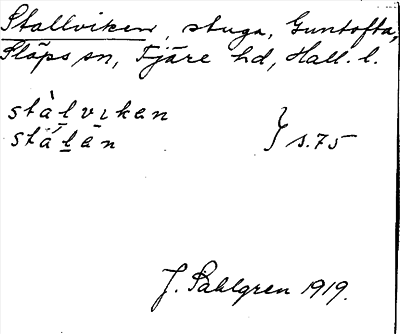 Stallviken, stuga, Guntofta,
Släps sn, Fjäre hd, Hall. l.
stàlvıkan
stálän } s. 75
J. Sahlgren 1919.